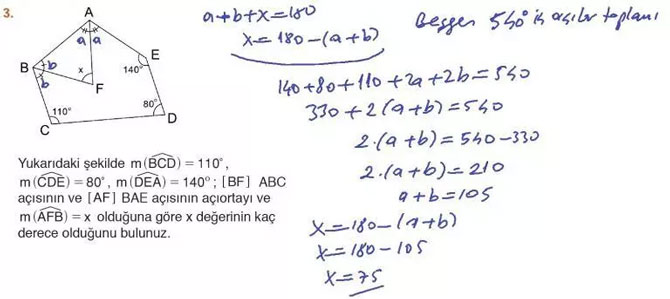 3.
A
a a
B
b
b
x
F
E
140°
110°
80°
C
D
Yukarıdaki şekilde m(BCD) = 110°,
m(CDE) = 80°, m(DEA) = 140°; [BF] ABC
açısının ve [AF] BAE açısının açıortayı ve
m(AFB) = x olduğuna göre x değerinin kaç
derece olduğunu bulunuz.
a+b+x=180
x=180-(a+b)
Beşgen 540° iç açılar toplamı
140+80+110+2a+2b=540
330+2(a+b)=540
2.(a+b)=540-330
2.(a+b)=210
a+b=105
x=180-(a+b)
x=180-105
x=75